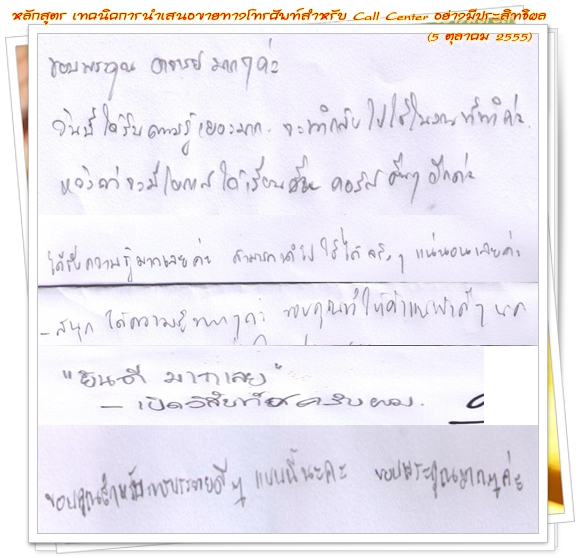 หลักสูตร เทคนิคการนำเสนอขายทางโทรศัพท์สำหรับ Call Center อย่างมีประสิทธิผล
(5 ตุลาคม 2555)
ขอบพระคุณ อาจารย์ มากๆค่ะ
วันนี้ได้รับความรู้เยอะมาก จะนำกลับไปใช้ในงานที่ทำค่ะ
หวังว่าจะมีโอกาสได้เรียน คอร์สอื่นๆ อีกค่ะ
ได้รับความรู้มากเลยค่ะ สามารถนำไปใช้ได้จริงๆ แน่นอนเลยค่ะ
- สนุก ได้ความรู้มากๆค่ะ ขอบคุณที่ให้คำแนะนำดีๆ
"ยินดี มากเลย"
- เปิดวิสัยทัศน์ครับผม.
ขอบคุณสำหรับการบรรยายดีๆ แบบนี้นะคะ ขอบพระคุณมากๆค่ะ